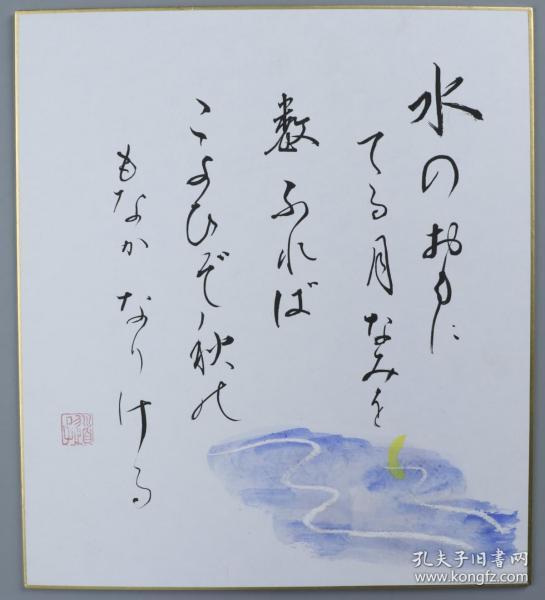 水のおもに
てる月なみを
数ふれば
こよひぞ秋の
もなかなりける
孔夫子旧书网
www.kongfz.com